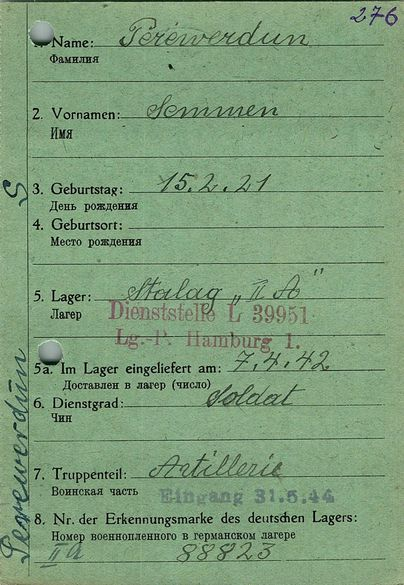 276
1. Name: Perewerdun
Фамилия
2. Vornamen: Semmen
Имя
3. Geburtstag: 15.2.21
День рождения
4. Geburtsort:
Место рождения
5. Lager: Stalag „II A"
Лагер
Dienststelle L 39951
Lg.-P. Hamburg 1.
5a. Im Lager eingeliefert am: 7.4.42
Доставлен в лагер (число)
6. Dienstgrad: Soldat
Чин
7. Truppenteil: Artillerie
Воинская часть
Eingang 31.5.44
8. Nr. der Erkennungsmarke des deutschen Lagers:
Номер военнопленного в германском лагере
II A 88823
Perewerdun S